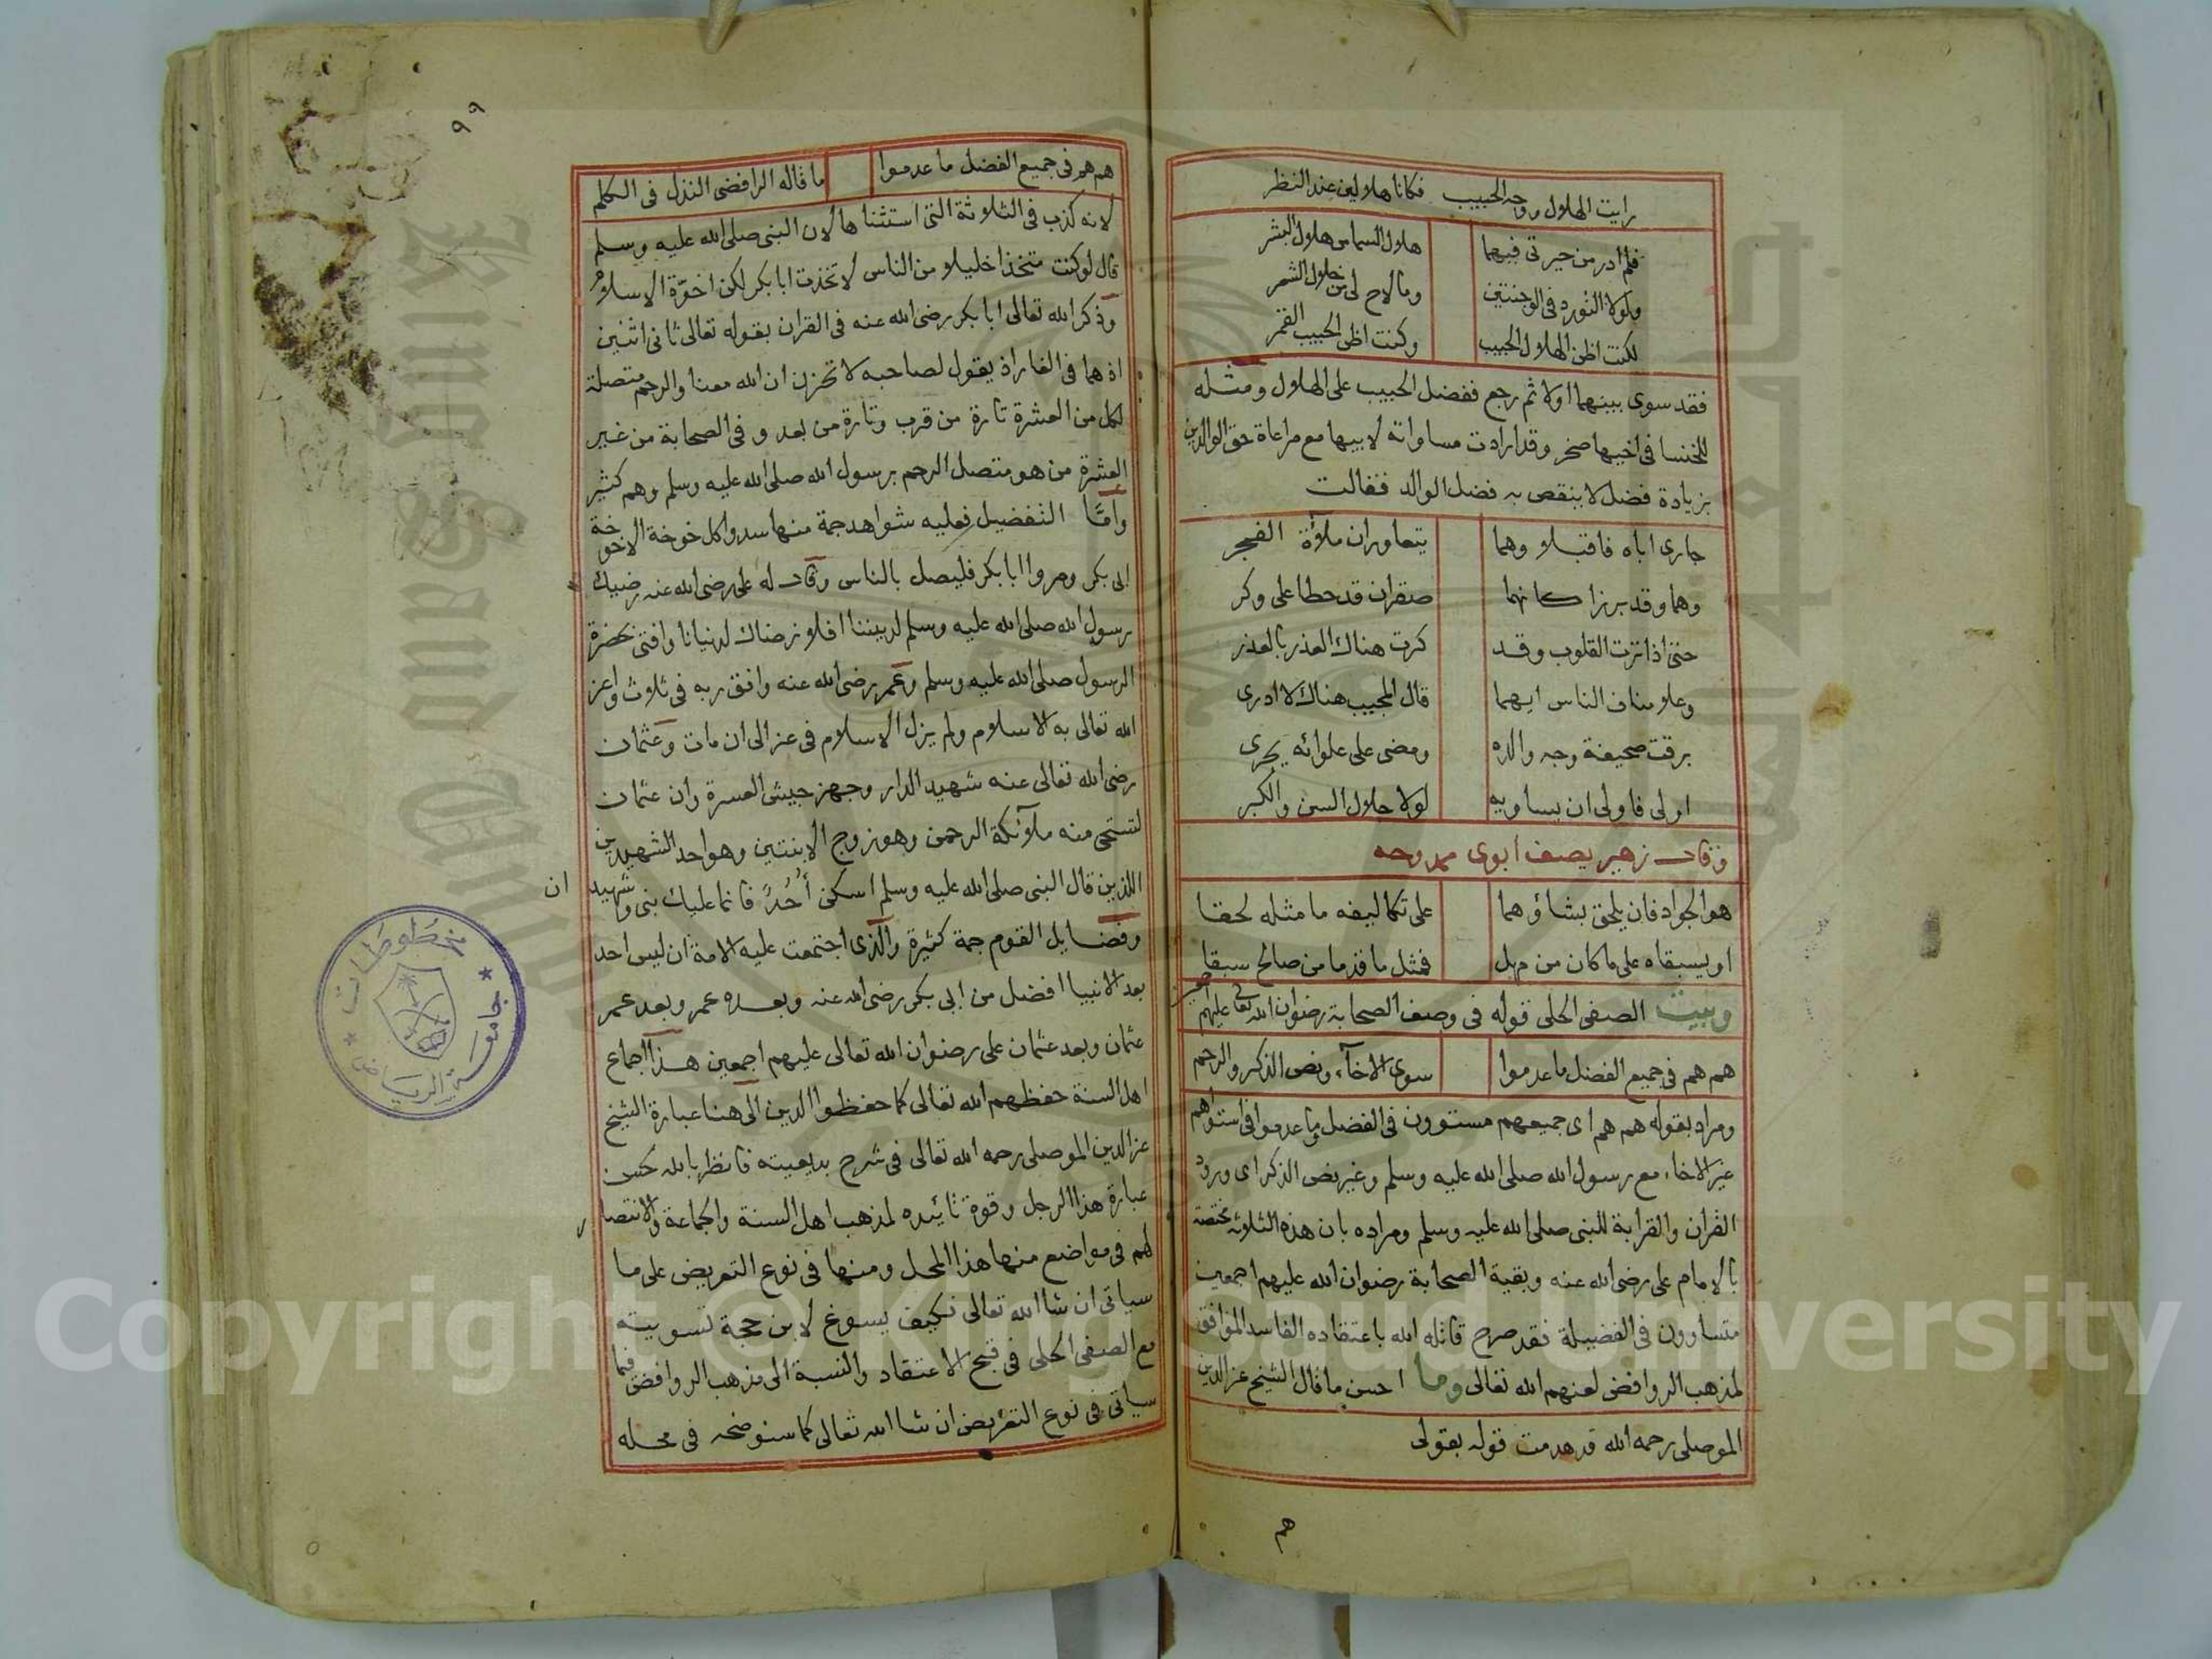 رايت الهلال ووجه الحبيب فكانا هلالين عند النظر
فلم ادر من حيرتي فيهما هلال السما من هلال البشر
ولولا التورد في الوجنتين وما لاح لي من خلال الشعر
لكنت اظن الهلال الحبيب وكنت اظن الحبيب القمر
فقد سوى بينهما اولا ثم رجع ففضل الحبيب على الهلال ومثله
للخنسا في اخيها صخر وقد ارادت مساواته لابيها مع مراعاة حق الوالدين
بزيادة فضل لا ينقص به فضل الوالد فقالت
جارى اباه فاقبلا وهما يتعاوران ملآة الفجر
وهما وقد برزا كانهما صقران قد حطا على وكر
حتى اذا نزت القلوب وقد كرت هناك العذر بالعذر
وعلا مناف الناس ايهما قال المجيب هناك لا ادرى
برقت صحيفة وجه والده ومضى على علوائه يجرى
اولى فاولى ان يساويه لولا جلال السن والكبر
وقال زهير يصف ابوى ممدوحه
هو الجواد فان يلحق بشاؤهما على تكاليفه ما مثله لحقا
او يسبقاه على ما كان من مهل فمثل ما قدما من صالح سبقا
وبيت الصفى الحلى قوله في وصف الصحابة رضوان الله تعالى عليهم اجمعين
هم هم في جميع الفضل ما عدموا سوى الاخآء ونص الذكر والرحم
ومراد بقوله هم هم اى جميعهم مستوون في الفضل وما عدموا في استواهم
غير الاخاء مع رسول الله صلى الله عليه وسلم وغير نص الذكر اى ورود
القران والقرابة للنبى صلى الله عليه وسلم ومراده بان هذه الثلاثة مختصة
بالامام على رضى الله عنه وبقية الصحابة رضوان الله عليهم اجمعين
متساوون في الفضيلة فقد صرح قاتله الله باعتقاده الفاسد الموافق
لمذهب الروافض لعنهم الله تعالى وما احسن ما قال الشيخ عز الدين
الموصلى رحمه الله قد هدمت قوله بقولى
هم
٩٩
هم هم في جميع الفضل ما عدموا ما قاله الرافضى النذل في الكلم
لانه كذب في الثلاثة التى استثناها لان النبى صلى الله عليه وسلم
قال لو كنت متخذا خليلا من الناس لاتخذت ابا بكر لكن اخوة الاسلام
وذكر الله تعالى ابا بكر رضى الله عنه في القران بقوله تعالى ثانى اثنين
اذ هما في الغار اذ يقول لصاحبه لا تحزن ان الله معنا والرحم متصلة
لكل من العشرة تارة من قرب وتارة من بعد وفى الصحابة من غير
العشرة من هو متصل الرحم برسول الله صلى الله عليه وسلم وهم كثير
وامّا التفضيل فعليه شواهد جمة منها سدوا كل خوخة الا خوخة
ابى بكر ومروا ابا بكر فليصل بالناس وقال له على رضى الله عنه رضيك
رسول الله صلى الله عليه وسلم لديننا افلا نرضاك لدنيانا وافتى بحضرة
الرسول صلى الله عليه وسلم وعمر رضى الله عنه وافق ربه في ثلاث واعز
الله تعالى به الاسلام ولم يزل الاسلام في عز الى ان مات وعثمان
رضى الله تعالى عنه شهيد الدار وجهز جيش العسرة وان عثمان
لتستحى منه ملآئكة الرحمن وهو زوج الابنتين وهو احد الشهيدين
اللذين قال النبى صلى الله عليه وسلم اسكن أُحُدُ فانما عليك نبى وشهيدان
وفضايل القوم جمة كثيرة والذى اجتمعت عليه الامة ان ليس احد
بعد الانبيا افضل من ابى بكر رضى الله عنه وبعده عمر وبعد عمر
عثمان وبعد عثمان على رضوان الله تعالى عليهم اجمعين هذا اجماع
اهل السنة حفظهم الله تعالى كما حفظوا الدين الى هنا عبارة الشيخ
عز الدين الموصلى رحمه الله تعالى في شرح بديعيته فانظر بالله حسن
عبارة هذا الرجل وقوة تائيده لمذهب اهل السنة والجماعة والانتصار
لهم في مواضع منها هذا المحل ومنها في نوع التعريض على ما
سياتى ان شا الله تعالى فكيف يسوغ لابن حجة تسويته
مع الصفى الحلى في قبح الاعتقاد والنسبة الى مذهب الروافض فيما
سياتى في نوع التعريض ان شا الله تعالى كما سنوضحه في محله
جامعة الرياض
مخطوطات
Copyright © King Saud University